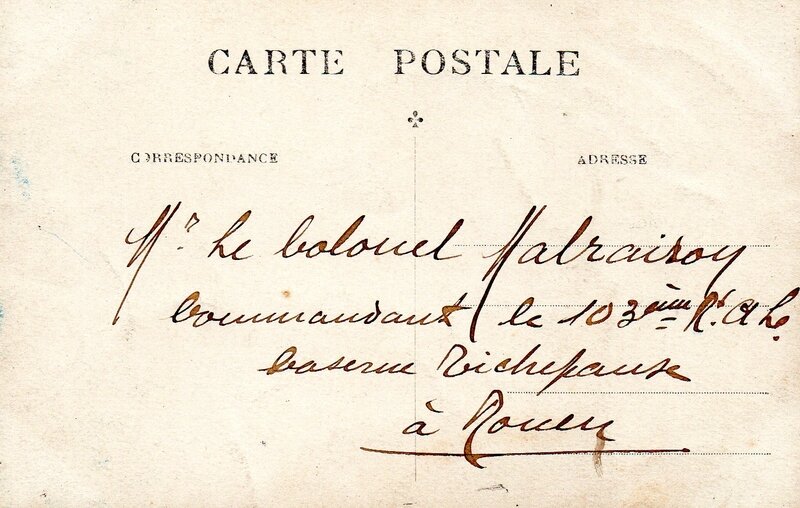 CARTE POSTALE
CORRESPONDANCE
ADRESSE
Mr Le Colonel Malraison
Commandant le 103ème R. A. L.
Caserne Richepanse
à Rouen